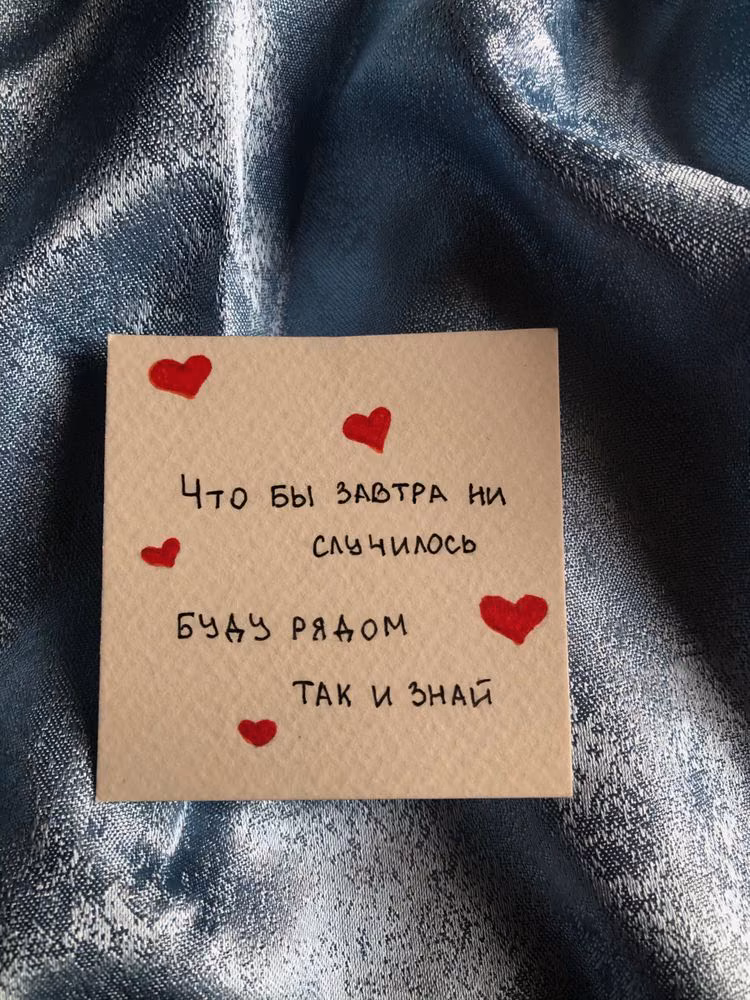 Что бы завтра ни
случилось
буду рядом
так и знай